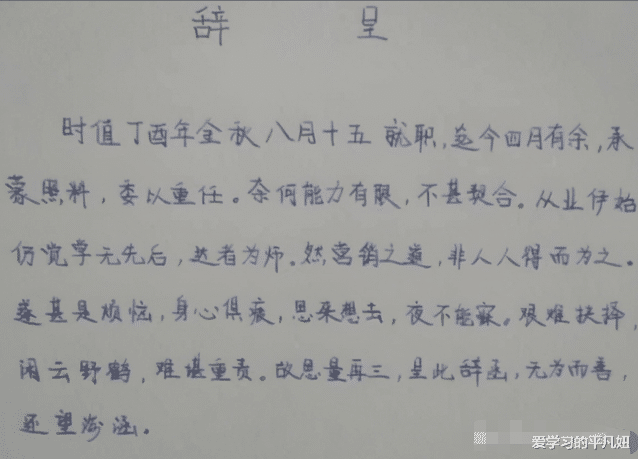 辞 呈
时值丁酉年金秋八月十五就职，迄今四月有余，承
蒙照料，委以重任。奈何能力有限，不甚契合。从业伊始
仍觉学无先后，达者为师。然，营销之道，非人人得而为之。
遂甚是烦忧，身心俱疲，思来想去，夜不能寐。艰难抉择，
闲云野鹤，难堪重责。故思量再三，呈此辞函，无为而善，
还望海涵。
爱学习的平凡妞